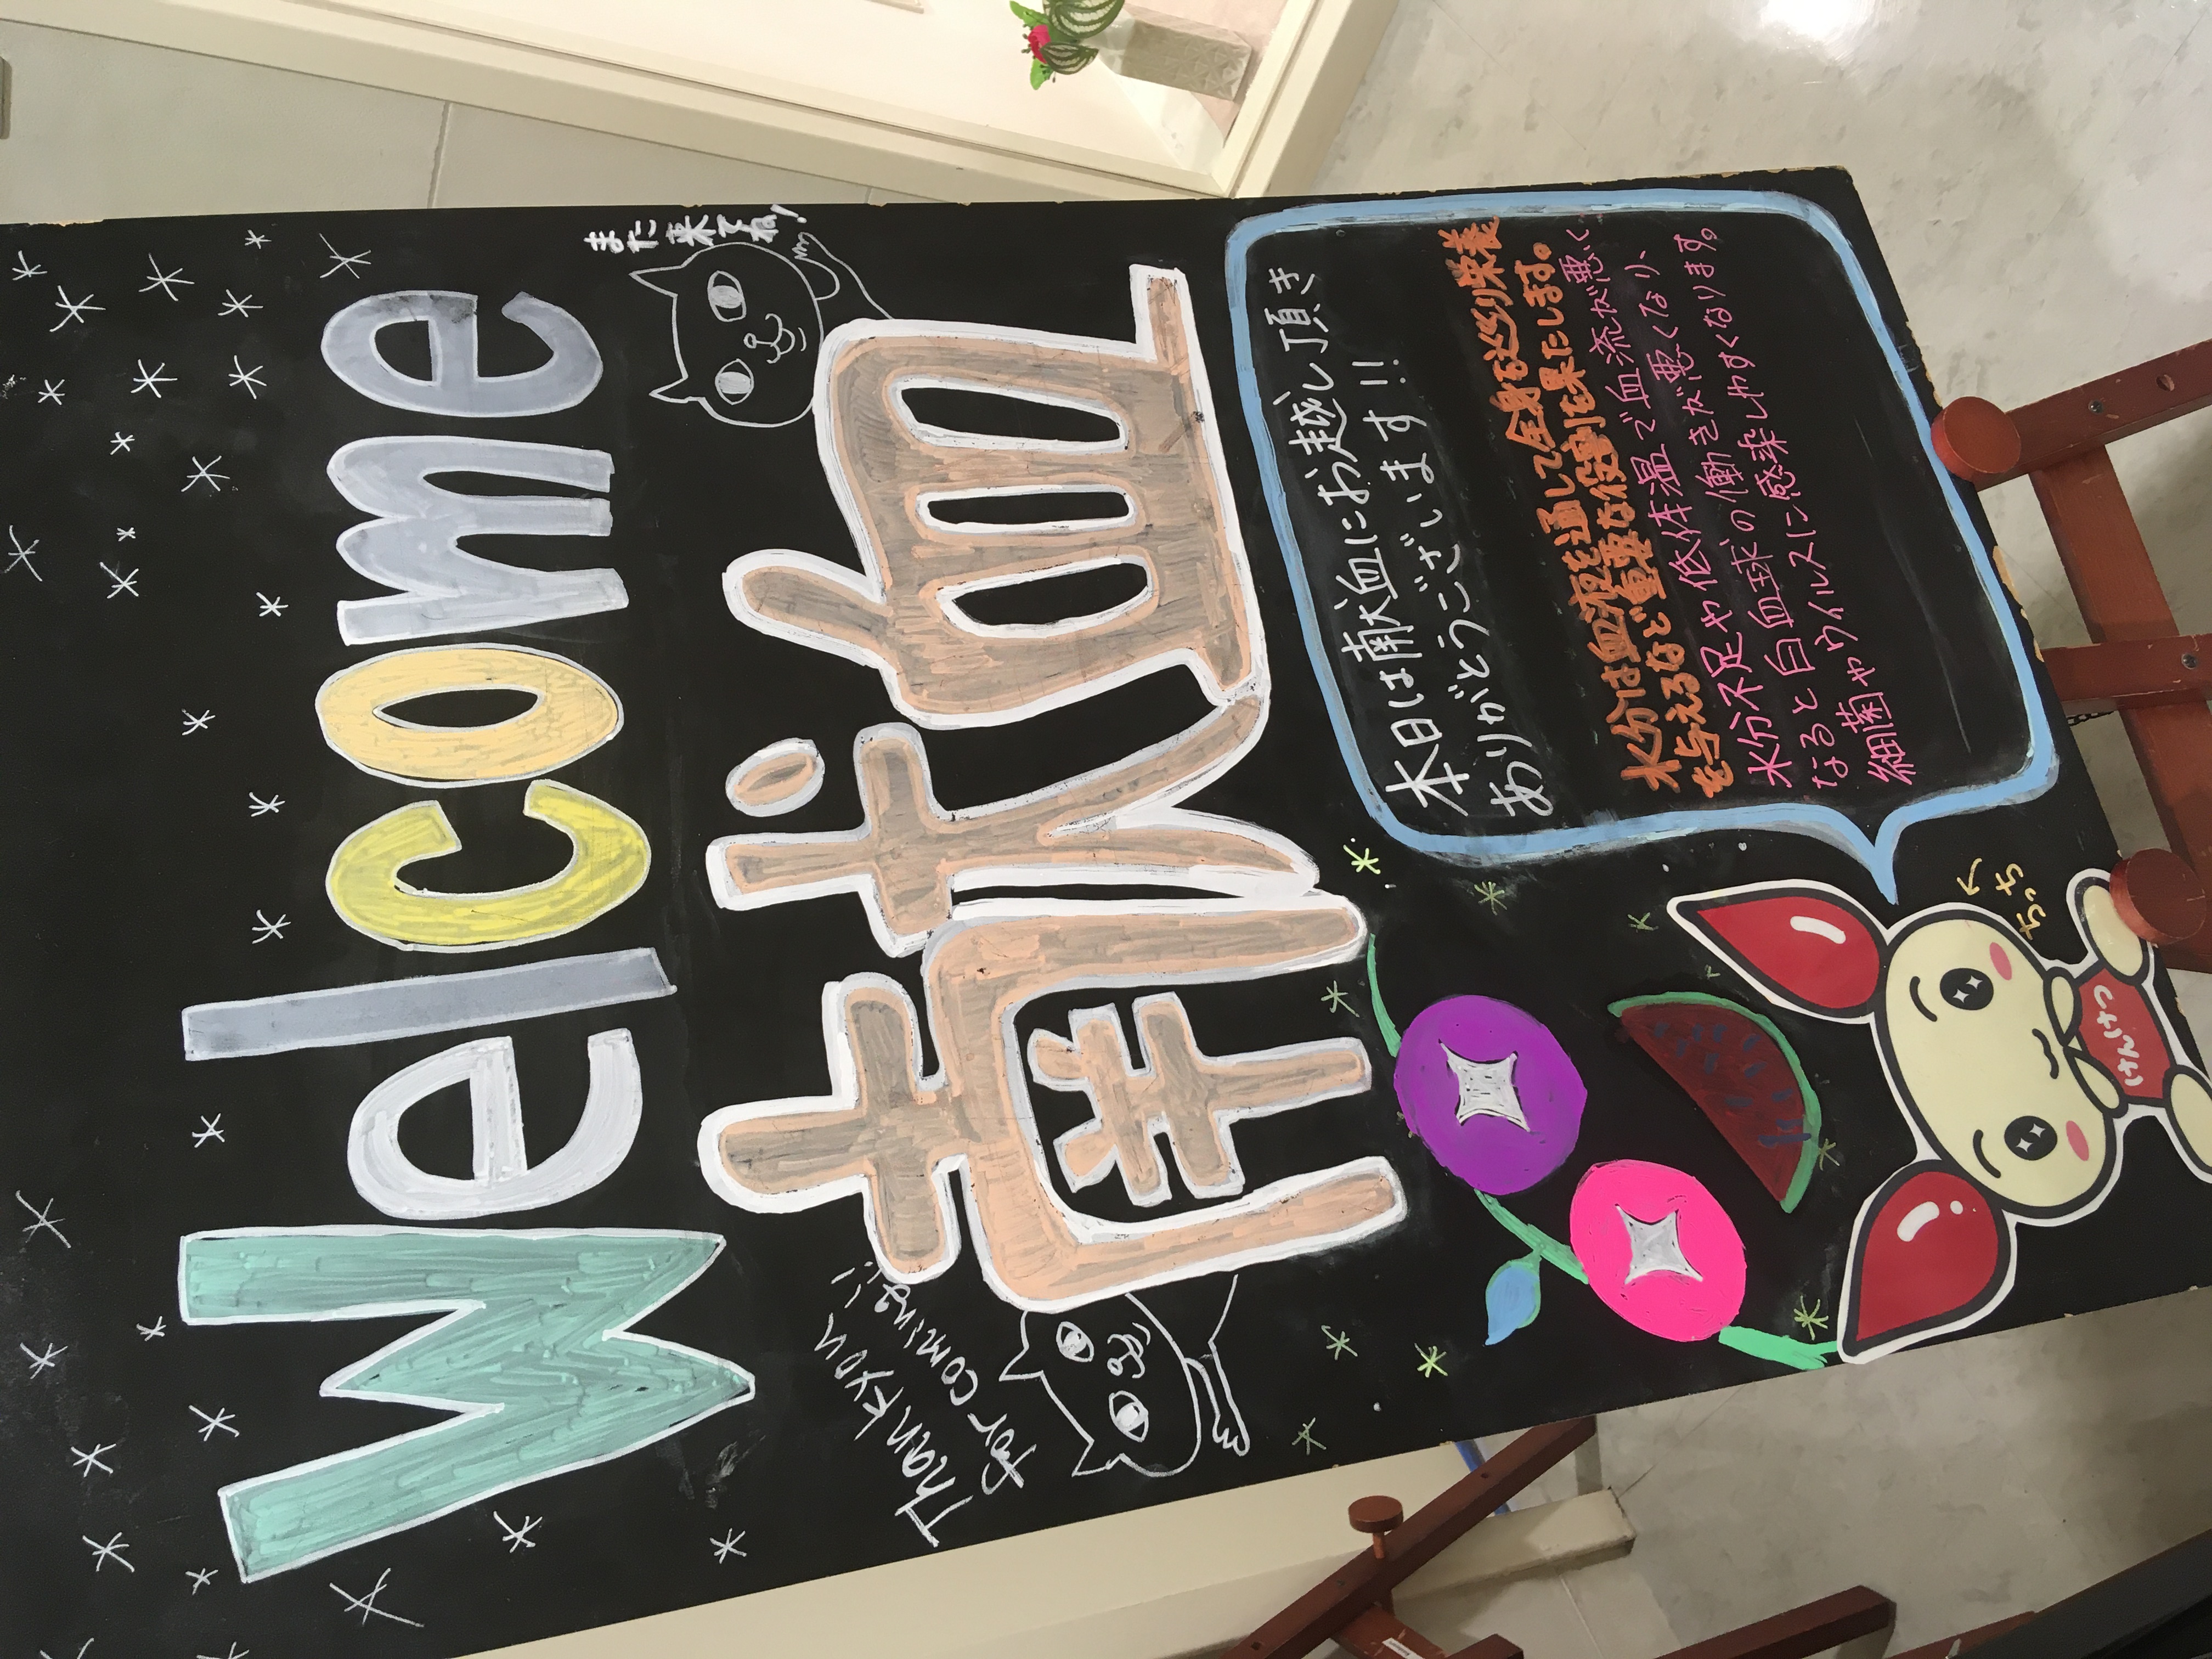 Welcome
献血
また来てね!
Thank you
for coming!!
本日は献血にお越し頂き
ありがとうございます!!
水分は血液を通して全身を巡り栄養
を与えるなど重要な役割を果たします。
水分不足や低体温で血流が悪く
なると白血球の働きが悪くなり、
細菌やウイルスに感染しやすくなります。
ちっち
けんけつ